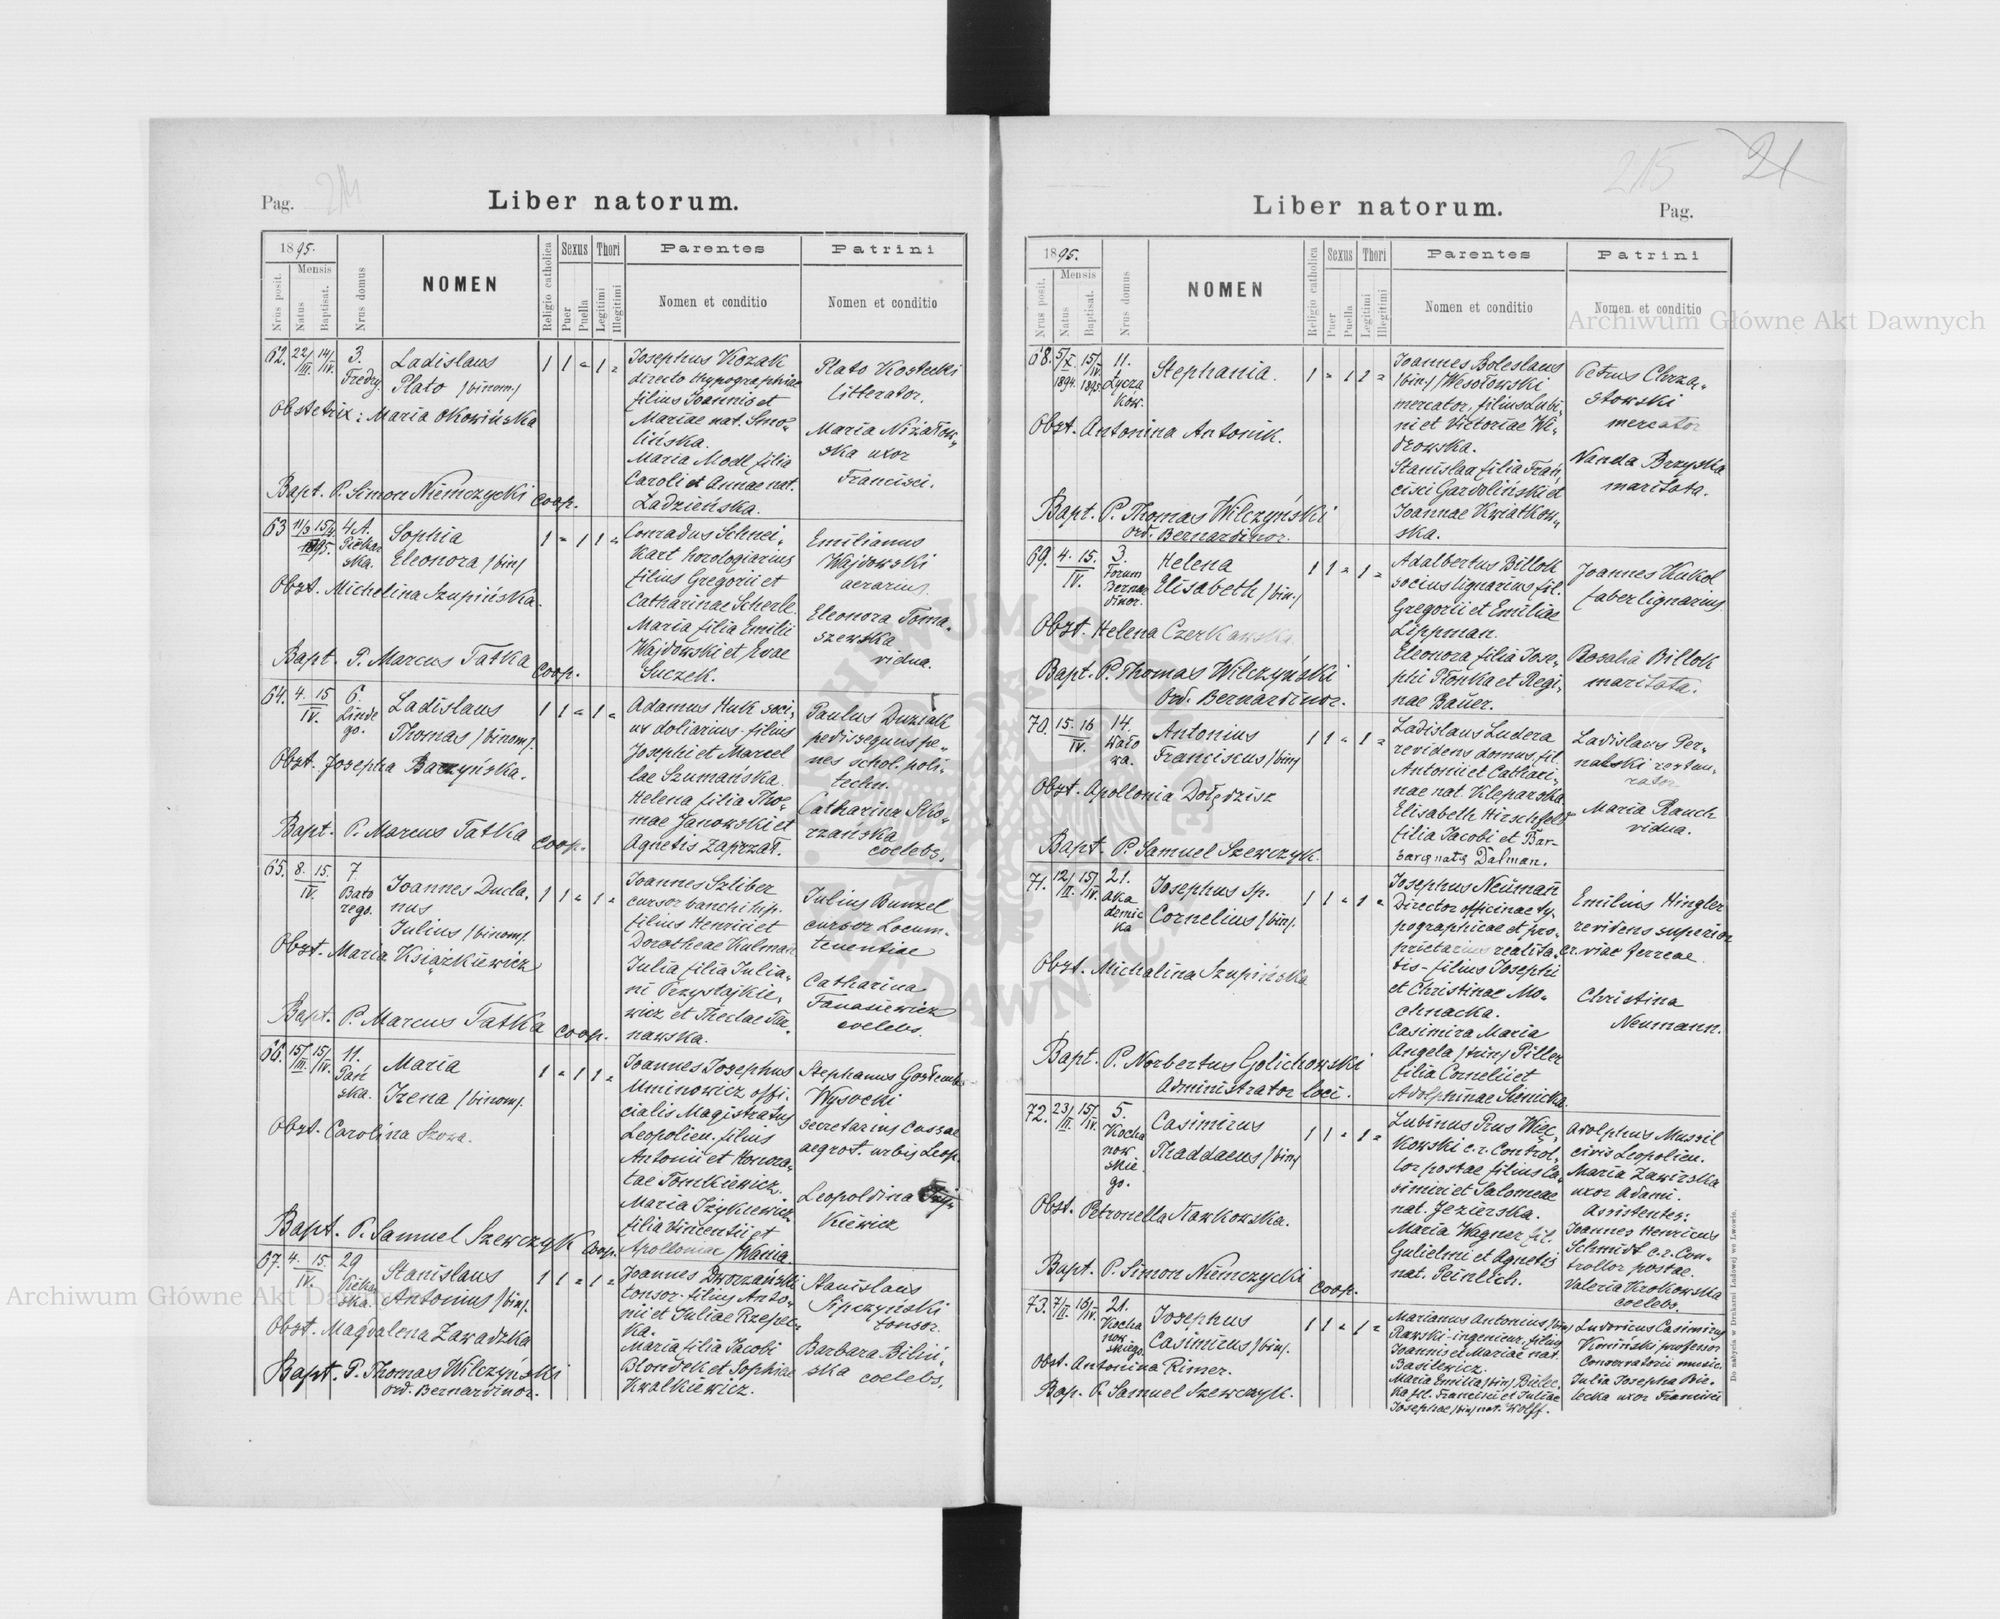 Pag. 214
Liber natorum.
1895.
Nrus posit.
Mensis
Natus
Baptisat.
Nrus domus
NOMEN
Religio catholica
Sexus
Puer
Puella
Thori
Legitimi
Illegitimi
Parentes
Nomen et conditio
Patrini
Nomen et conditio
62. 22/III. 14/IV. 3. Fredry
Ladislaus
Plato /binom/
1 1 - 1 -
Obstetrix: Maria Okowińska
Bapt. P. Simon Niemczycki coop.
Josephus Kozak
directo thypographiae
filius Joannis et
Mariae nat. Smo-
lińska.
Maria Modl filia
Caroli et Annae nat.
Ladzieńska.
Plato Kostecki
litterator.
Maria Niżałow-
ska uxor
Francisci.
63 11/3 15/4 1895. 4A. Piekar
ska.
Sophia
Eleonora /bin/
1 - 1 1 -
Obst. Michelina Szupińska.
Bapt. P. Marcus Tatka coop.
Conradus Schnei-
kart horologiarius
filius Gregorii et
Catharinae Scherle
Maria filia Emilii
Wajdowski et Evae
Suczek.
Emilianus
Wajdowski
aerarius.
Eleonora Toma-
szewska
vidua.
64. 4. 15 IV. 6. Linde
go.
Ladislaus
Thomas /binom/.
1 1 - 1 -
Obst. Josepha Barzyńska.
Bapt. P. Marcus Tatka coop.
Adamus Huk soci-
us doliarius - filius
Josephi et Marcel
lae Szumańska.
Helena filia Tho-
mae Janowski et
Agnetis Zaprzał.
Paulus Duziak
pedissequus pe-
nes schol. poli-
techn.
Catharina Sko-
rzańska
coelebs.
65. 8. 15. IV. 7 Bato
rego.
Joannes Ducla-
nus
Julius /binom/.
1 1 - 1 -
Obst. Maria Książkiewicz
Bapt. P. Marcus Tatka coop.
Joannes Szliber
cursor banchi hip.
filius Henrici et
Dorotheae Kulman
Julia filia Julia-
ni Przystajkie-
wicz et Theclae Tar-
nawska.
Julius Bunzel
cursor Locum-
tenentiae
Catharina
Tanasiewicz
coelebs.
66. 15/III. 15/IV. 11. Pań
ska.
Maria
Irena /binom/.
1 - 1 1 -
Obst. Carolina
Bapt. P. Samuel Szewczyk coop.
Joannes Josephus
Uminowicz offi-
cialis Magistratus
Leopolien. filius
Antonii et Honora-
tae Tomkiewicz.
Maria Iżykiewicz
filia Vincentii et
Apolloniae /Wania.
Stephanus
Wysocki
secretarius Cassae
aegrot. urbis Leop.
Leopoldina
kiewicz
67. 4. 15. IV. 29 Piekar
ska.
Stanislaus
Antonius /bin/.
1 1 - 1 -
Obst. Magdalena Zawadzka
Bapt. P. Thomas Wilczyński
ord. Bernardinor.
Joannes Dworzański
tonsor - filius Anto-
nii et Juliae Rzepec-
ka.
Maria filia Jacobi
Blondek et Sophiae
Kwalkiewicz.
Stanislaus
Sipczyński
tonsor.
Barbara Biliń-
ska coelebs.
215 21
Liber natorum.
Pag.
1895.
Nrus posit.
Mensis
Natus
Baptisat.
Nrus domus
NOMEN
Religio catholica
Sexus
Puer
Puella
Thori
Legitimi
Illegitimi
Parentes
Nomen et conditio
Patrini
Nomen et conditio
68. 5/X 1894. 15/IV. 1895 11. Łycza
kow.
Stephania.
1 - 1 1 -
Obst. Antonina Antonik.
Bapt. P. Thomas Wilczyński
ord. Bernardinor.
Joannes Boleslaus
/bin/ Wesołowski
mercator, filius Lubi-
ni et Victoriae Wi-
drowska.
Stanislaa filia Fran-
cisci Gardoliński et
Joannae Kwiatkow-
ska.
Petrus Chrzą-
stowski
mercator
Vanda Brzyska
maritata.
69. 4. 15. IV. 3. Forum
Bernar
dinor.
Helena
Elisabeth /bin/
1 1 - 1 -
Obst. Helena Czerkawska.
Bapt. P. Thomas Wilczyński
Ord. Bernardinor.
Adalbertus Billok
socius lignarius fil.
Gregorii et Emiliae
Lippman.
Eleonora filia Jose-
phi Płonka et Regi-
nae Bauer.
Joannes Kukol
faber lignarius
Rosalia Billok
maritata.
70. 15. 16 IV. 14. Wało
wa.
Antonius
Franciscus /bin/
1 1 - 1 -
Obst. Apollonia Dołędzisz
Bapt. P. Samuel Szewczyk.
Ladislaus Ludera
revidens domus, fil.
Antonii et Cathari-
nae nat. Kleparska
Elisabeth Hirschfeld
filia Jacobi et Bar-
barę natę Dalman.
Ladislaus Per-
natski restau-
rator
Maria Rauch
vidua.
71. 12/II. 15/IV. 21. Aka
demic
ka
Josephus sp.
Cornelius /bin/.
1 1 - 1 -
Obst. Michalina Szupińska
Bapt. P. Norbertus Golichowski
Administrator loci.
Josephus Neumañ
Director officinae ty-
pographicae et pro-
prietarius realita-
tis - filius Josephi
et Christinae Mo-
chnacka.
Casimira Maria
Angela /trin/ Piller
filia Cornelii et
Adolphinae Sienicka.
Emilius Hingler
revidens superior
c. r. viae ferreae.
Christina
Neumann.
72. 23/III. 15/IV. 5. Kocha
now
skie
go.
Casimirus
Thaddaeus /bin/
1 1 - 1 -
Obst. Petronella Nawkowska.
Bapt. P. Simon Niemczycki coop.
Lubinus Prus Więc-
kowski c. r. Control-
lor postae filius Ca-
simiri et Salomeae
nat. Jezierska.
Maria Wagner fil.
Gulielmi et Agnetis
nat. Peinlich.
Adolphus Mussil
civis Leopolien.
Maria Zawirska
uxor Adami.
Assistentes:
Joannes Henricus
Schmidt c. r. Con-
trollor postae.
Valeria Krokowska
coelebs.
73. 7/II. 16/IV. 21. Kocha
now
skiego.
Josephus
Casimirus /bin/.
1 1 - 1 -
Obst. Antonina Rimer.
Bap. P. Samuel Szewczyk.
Marianus Antonius /bin/
Rawski - ingenieur, filius
Joannis et Mariae nat.
Basilewicz.
Maria Emilia /bin/ Bielec-
ka fil. Francisci et Juliae
Josephae /bin/ nat. Wolff.
Ludovicus Casimirus
Komiński professor
Conservatorii music.
Julia Josepha Bie-
lecka uxor Francisci
Do nabycia w Drukarni Ludowej we Lwowie.
Archiwum Główne Akt Dawnych
Archiwum Główne Akt Dawnych
ARCHIWUM GŁÓWNE AKT DAWNYCH